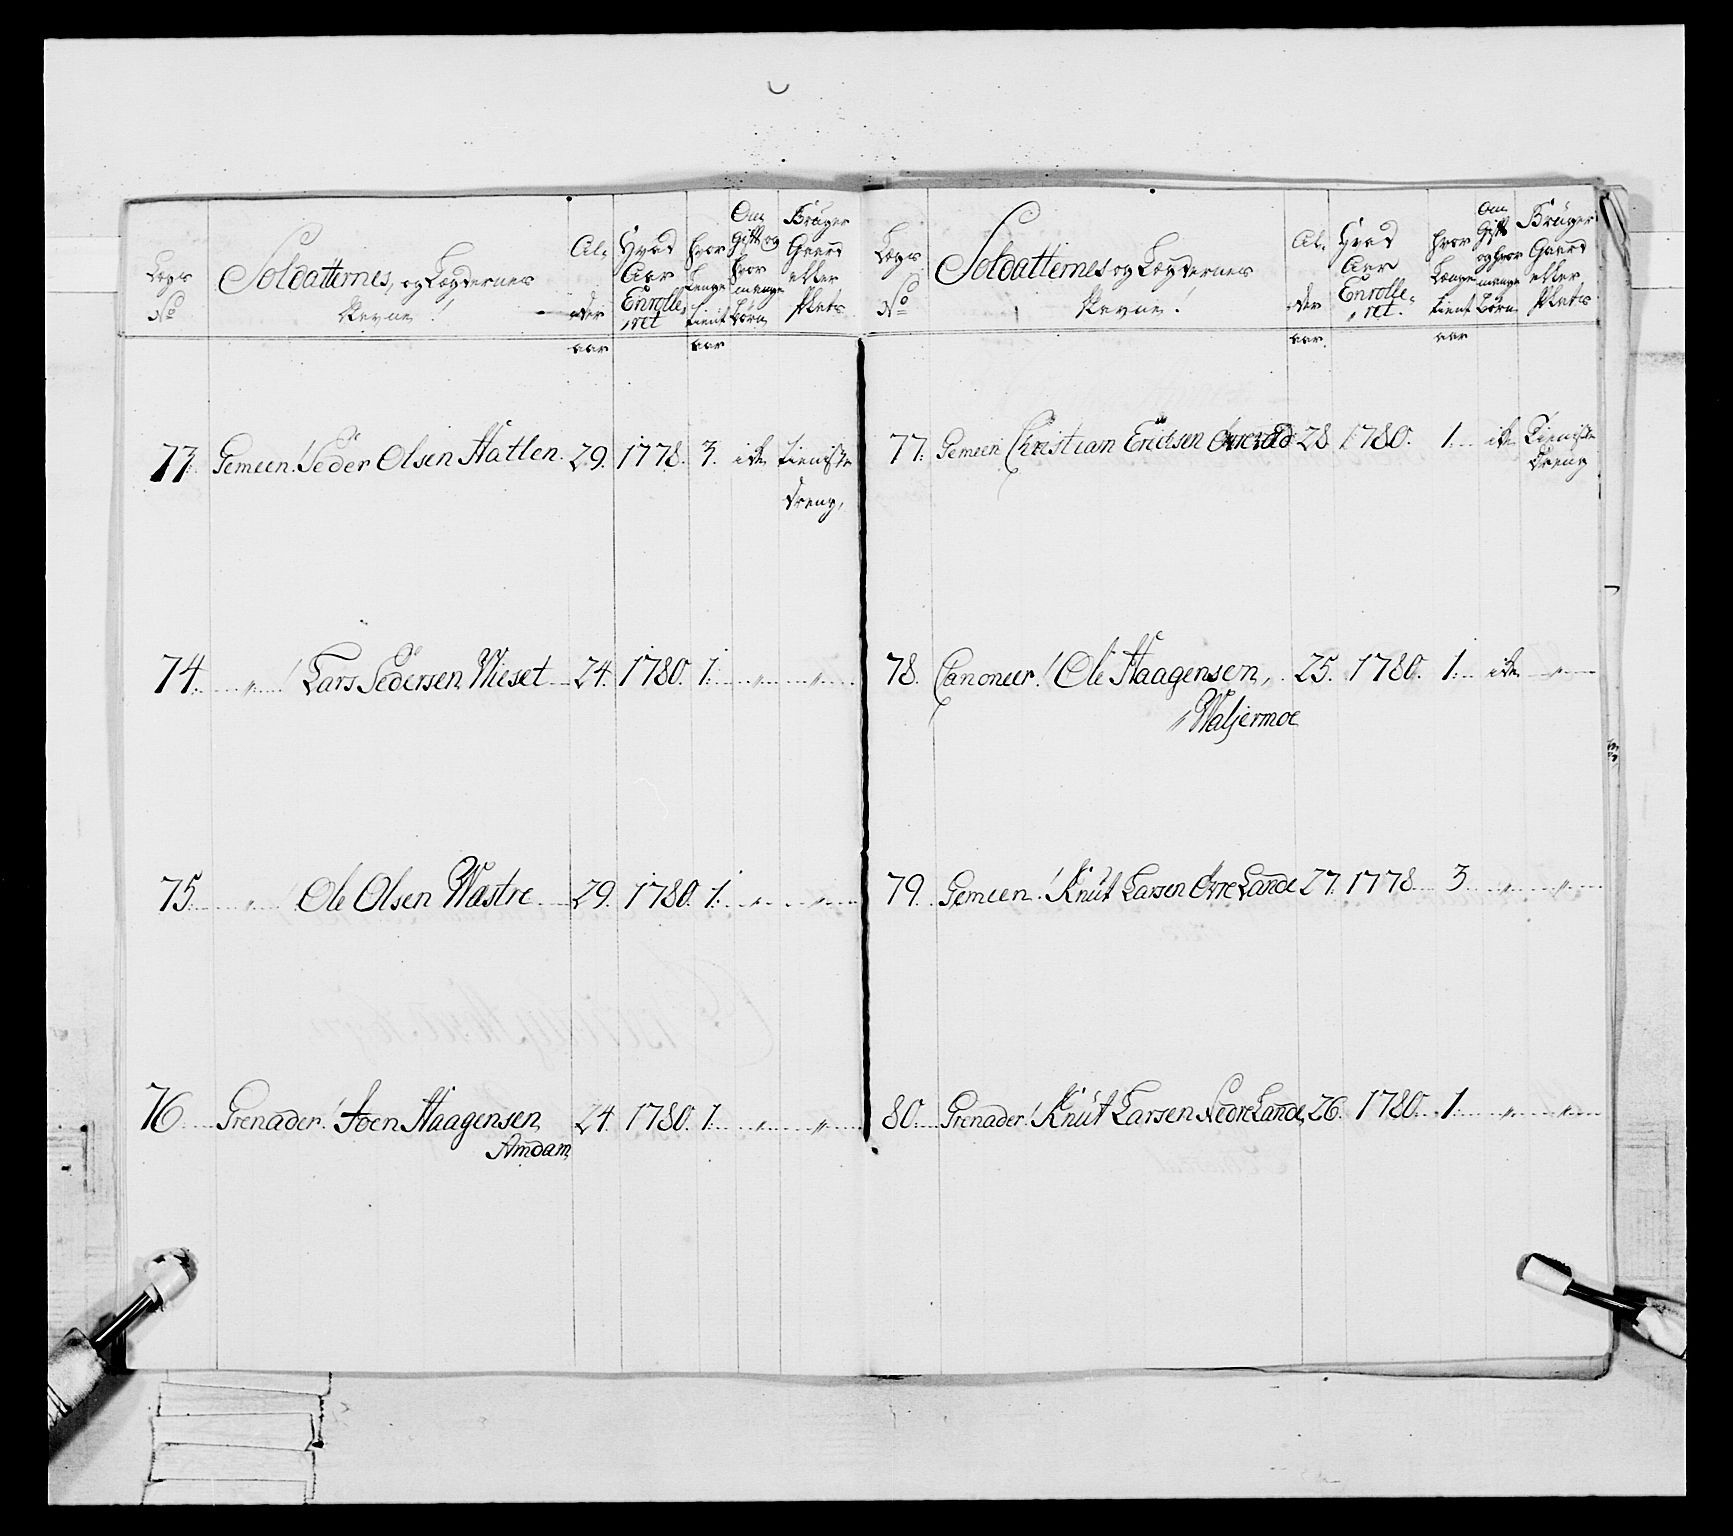 Legs No
Soldatternes, og Legdernes Nevne!
Al= =der aar
Hvad Aar Enrolle= =ret
hvor Lenge tient aar
Om Gift og hvor mange børn
Bruger Gaard eller Plads
73. Gemeen! Peder Olsen Hatlen. 29. 1778. 3. ike tieniste
dreng,
74. " ! Lars Pedersen Wieset 24. 1780. 1. " "
75. " ! Ole Olsen Wastre 29. 1780. 1. " "
76. Grenader! Joen Haagensen 24. 1780. 1. " "
Amdam
Legs No
Soldatternes og Legdernes Nevne!
Al= =der aar
Hvad Aar Enrolle= =ret.
hvor Længe tient aar
Om Gift og hvor mange Børn
Bruger Gaard eller Plads
77. Gemeen Christian Ericksen 28 1780. 1. ike Tieniste
Dreng
78. Canoneer! Ole Haagensen, 25. 1780. 1. ike "
Waljermoe
79. Gemeen! Knut Larsen Øvre Lande 27. 1778. 3. " "
80. Grenader! Knut Larsen Nedre Lande 26. 1780. 1. " "